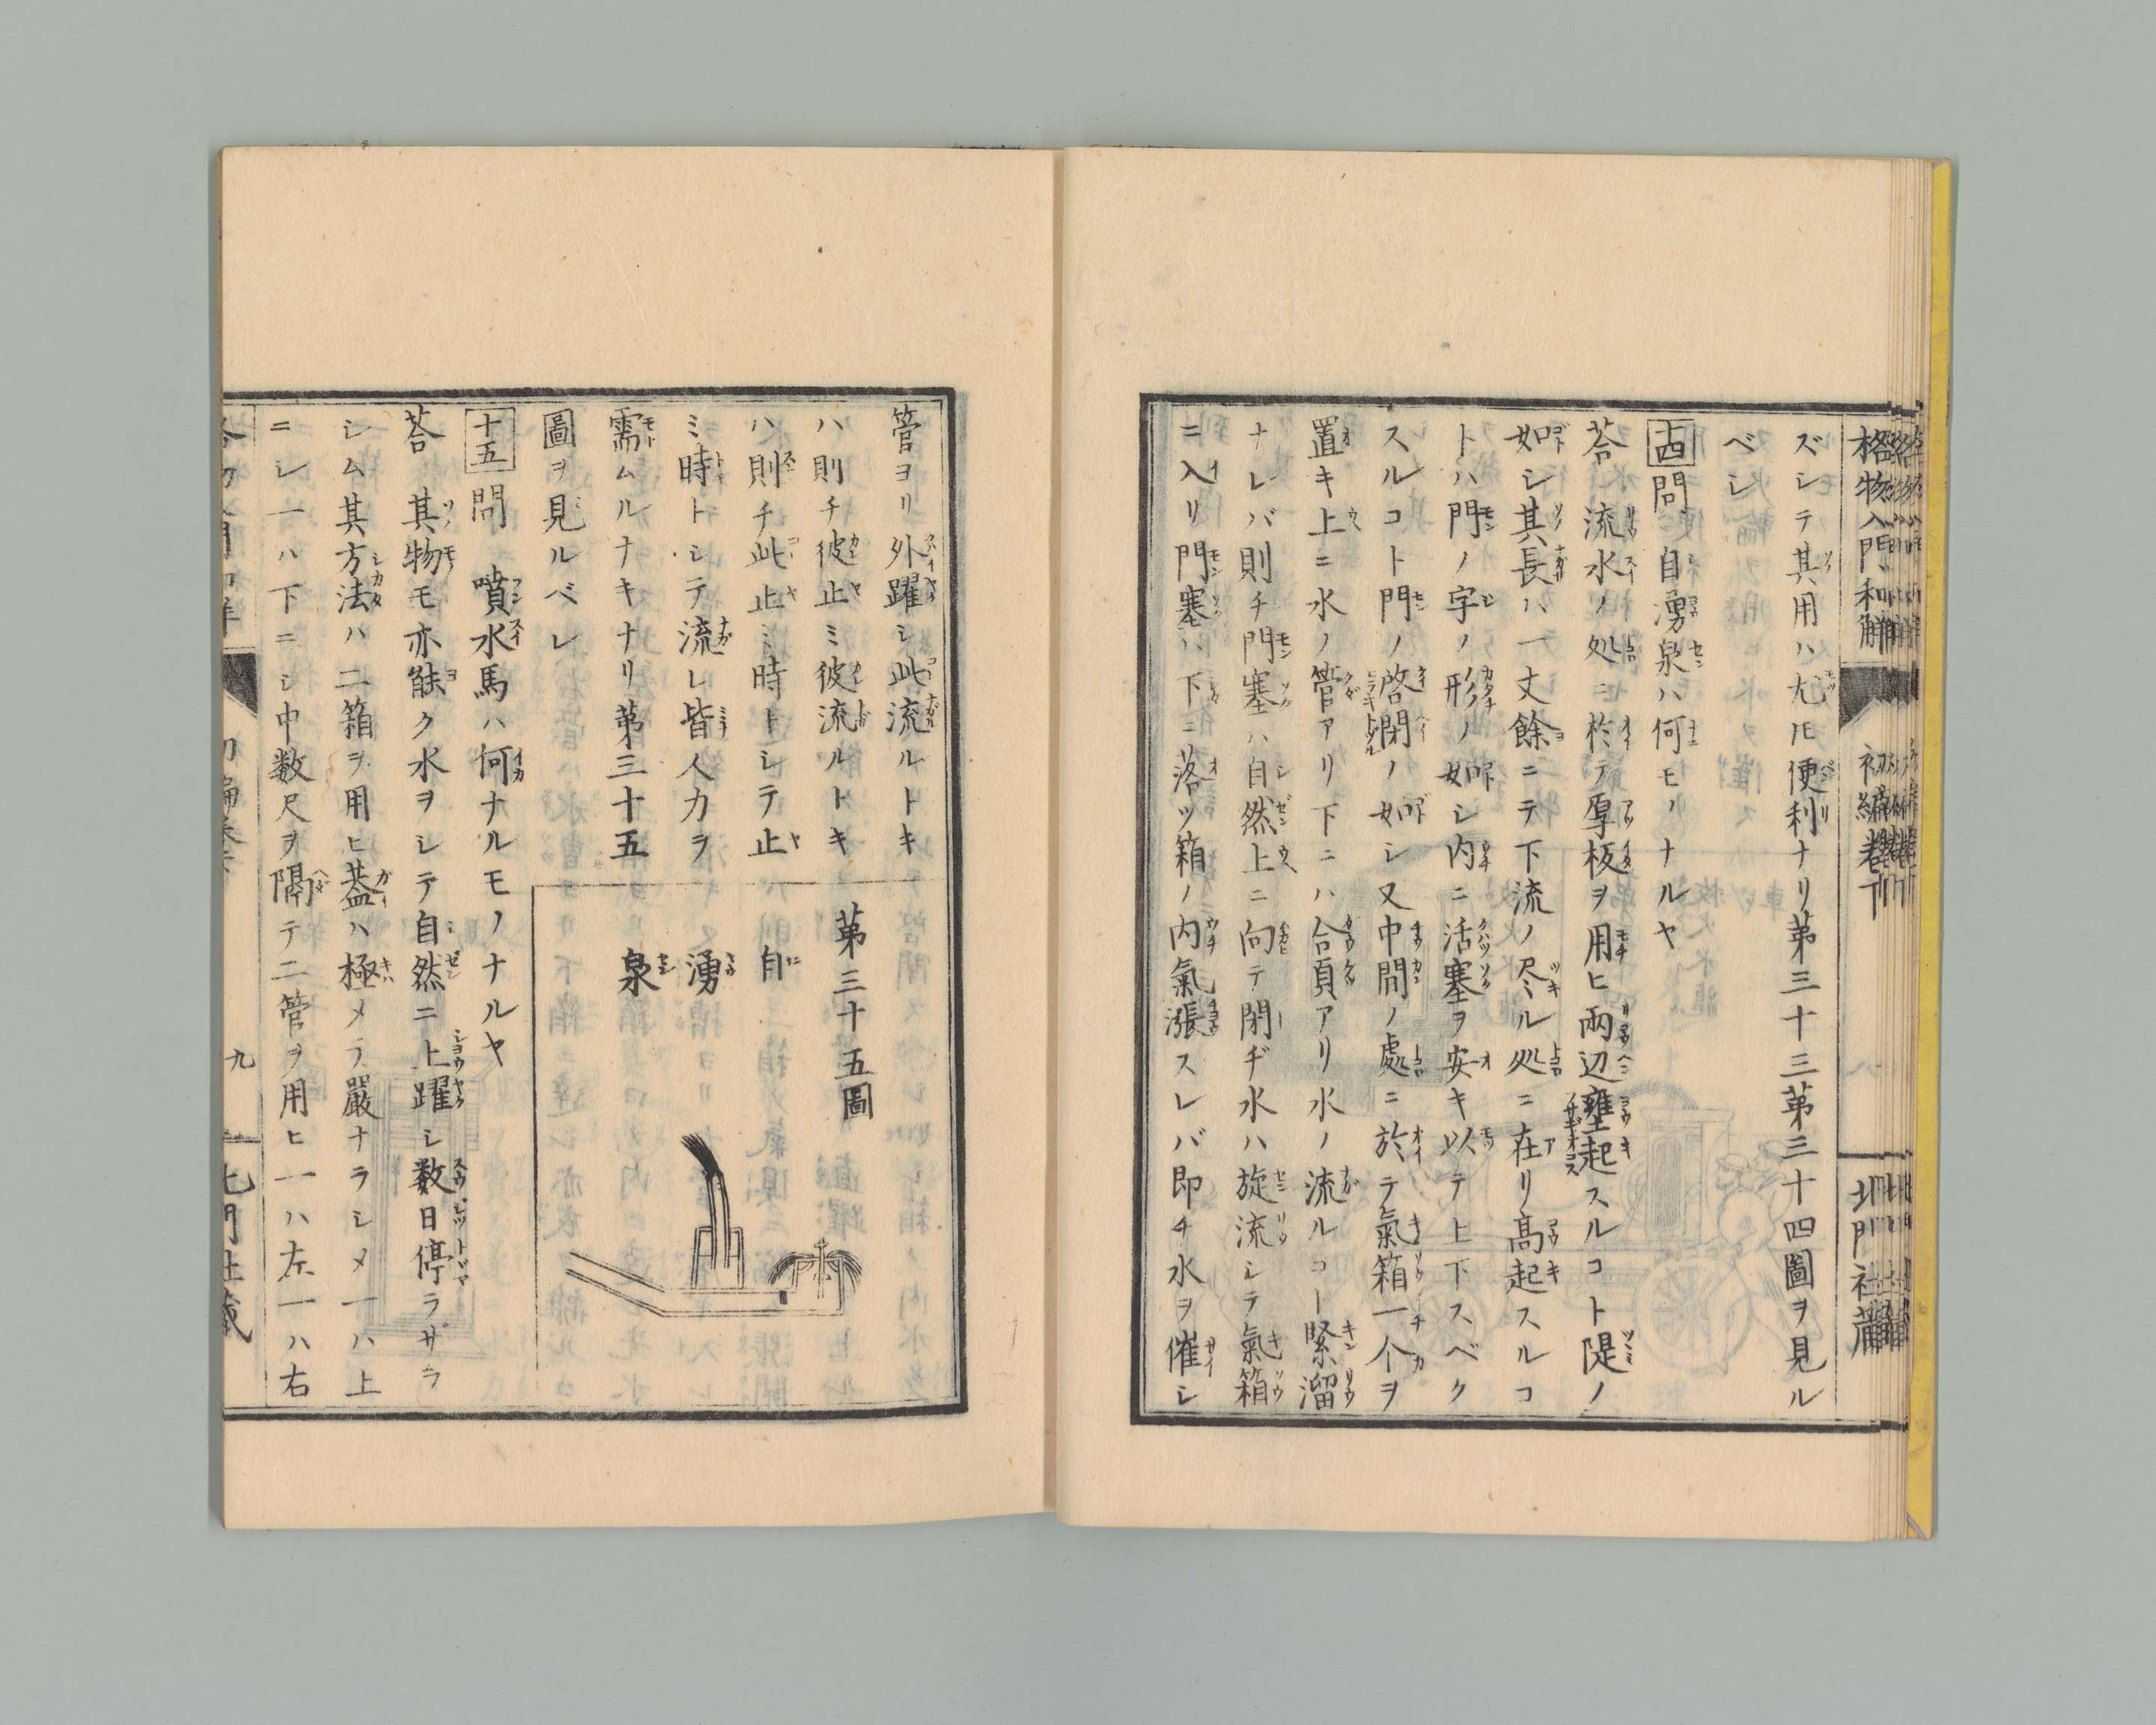 格物入門和解 初編巻下 北門社蔵
ズシテ其用ハ尤モ便利ナリ第三十三第三十四圖ヲ見ル
ベシ
十四 問 自湧泉ハ何モノナルヤ
荅 流水ノ処ニ於テ厚板ヲ用ヒ兩辺壅起スルコト隄ノ
如シ其長ハ一丈餘ニテ下流ノ尽ル処ニ在リ高起スルコ
トハ門ノ字ノ形ノ如シ内ニ活塞ヲ安キ以テ上下スベク
スルコト門ノ啓閉ノ如シ又中間ノ處ニ於テ氣箱一个ヲ
置キ上ニ水ノ管アリ下ニハ合頁アリ水ノ流ルコト緊溜
ナレバ則チ門塞ハ自然上ニ向テ閉ヂ水ハ旋流シテ氣箱
ニ入リ門塞ハ下ニ落ツ箱ノ内氣漲スレバ即チ水ヲ催シ
管ヨリ外躍シ此流ルトキ
ハ則チ彼止ミ彼流ルトキ
ハ則チ此止ミ時トシテ止
ミ時トシテ流レ皆人力ヲ
需ムルナキナリ第三十五
圖ヲ見ルベシ
第三十五圖
自
湧
泉
十五 問 噴水馬ハ何ナルモノナルヤ
荅 其物モ亦能ク水ヲシテ自然ニ上躍シ数日停ラザラ
シム其方法ハ二箱ヲ用ヒ葢ハ極メテ嚴ナラシメ一ハ上
ニシ一ハ下ニシ中数尺ヲ隔テ二管ヲ用ヒ一ハ左一ハ右
九
北門社蔵